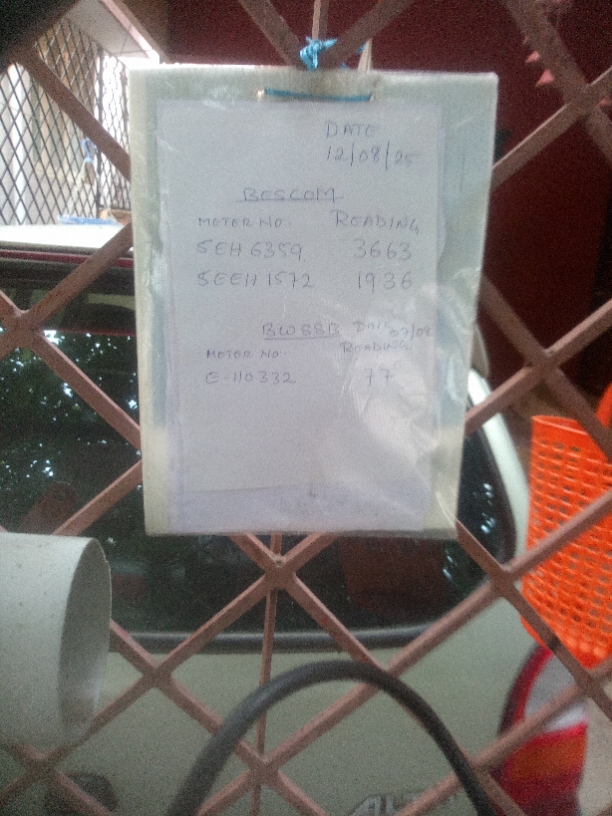 DATE
12/08/25
BESCOM
METER NO: READING
5EH 6359 3663
5EEH 1572 1936
BWSSB DATE 07/08
METER NO: READING
E-110332 77
ALT